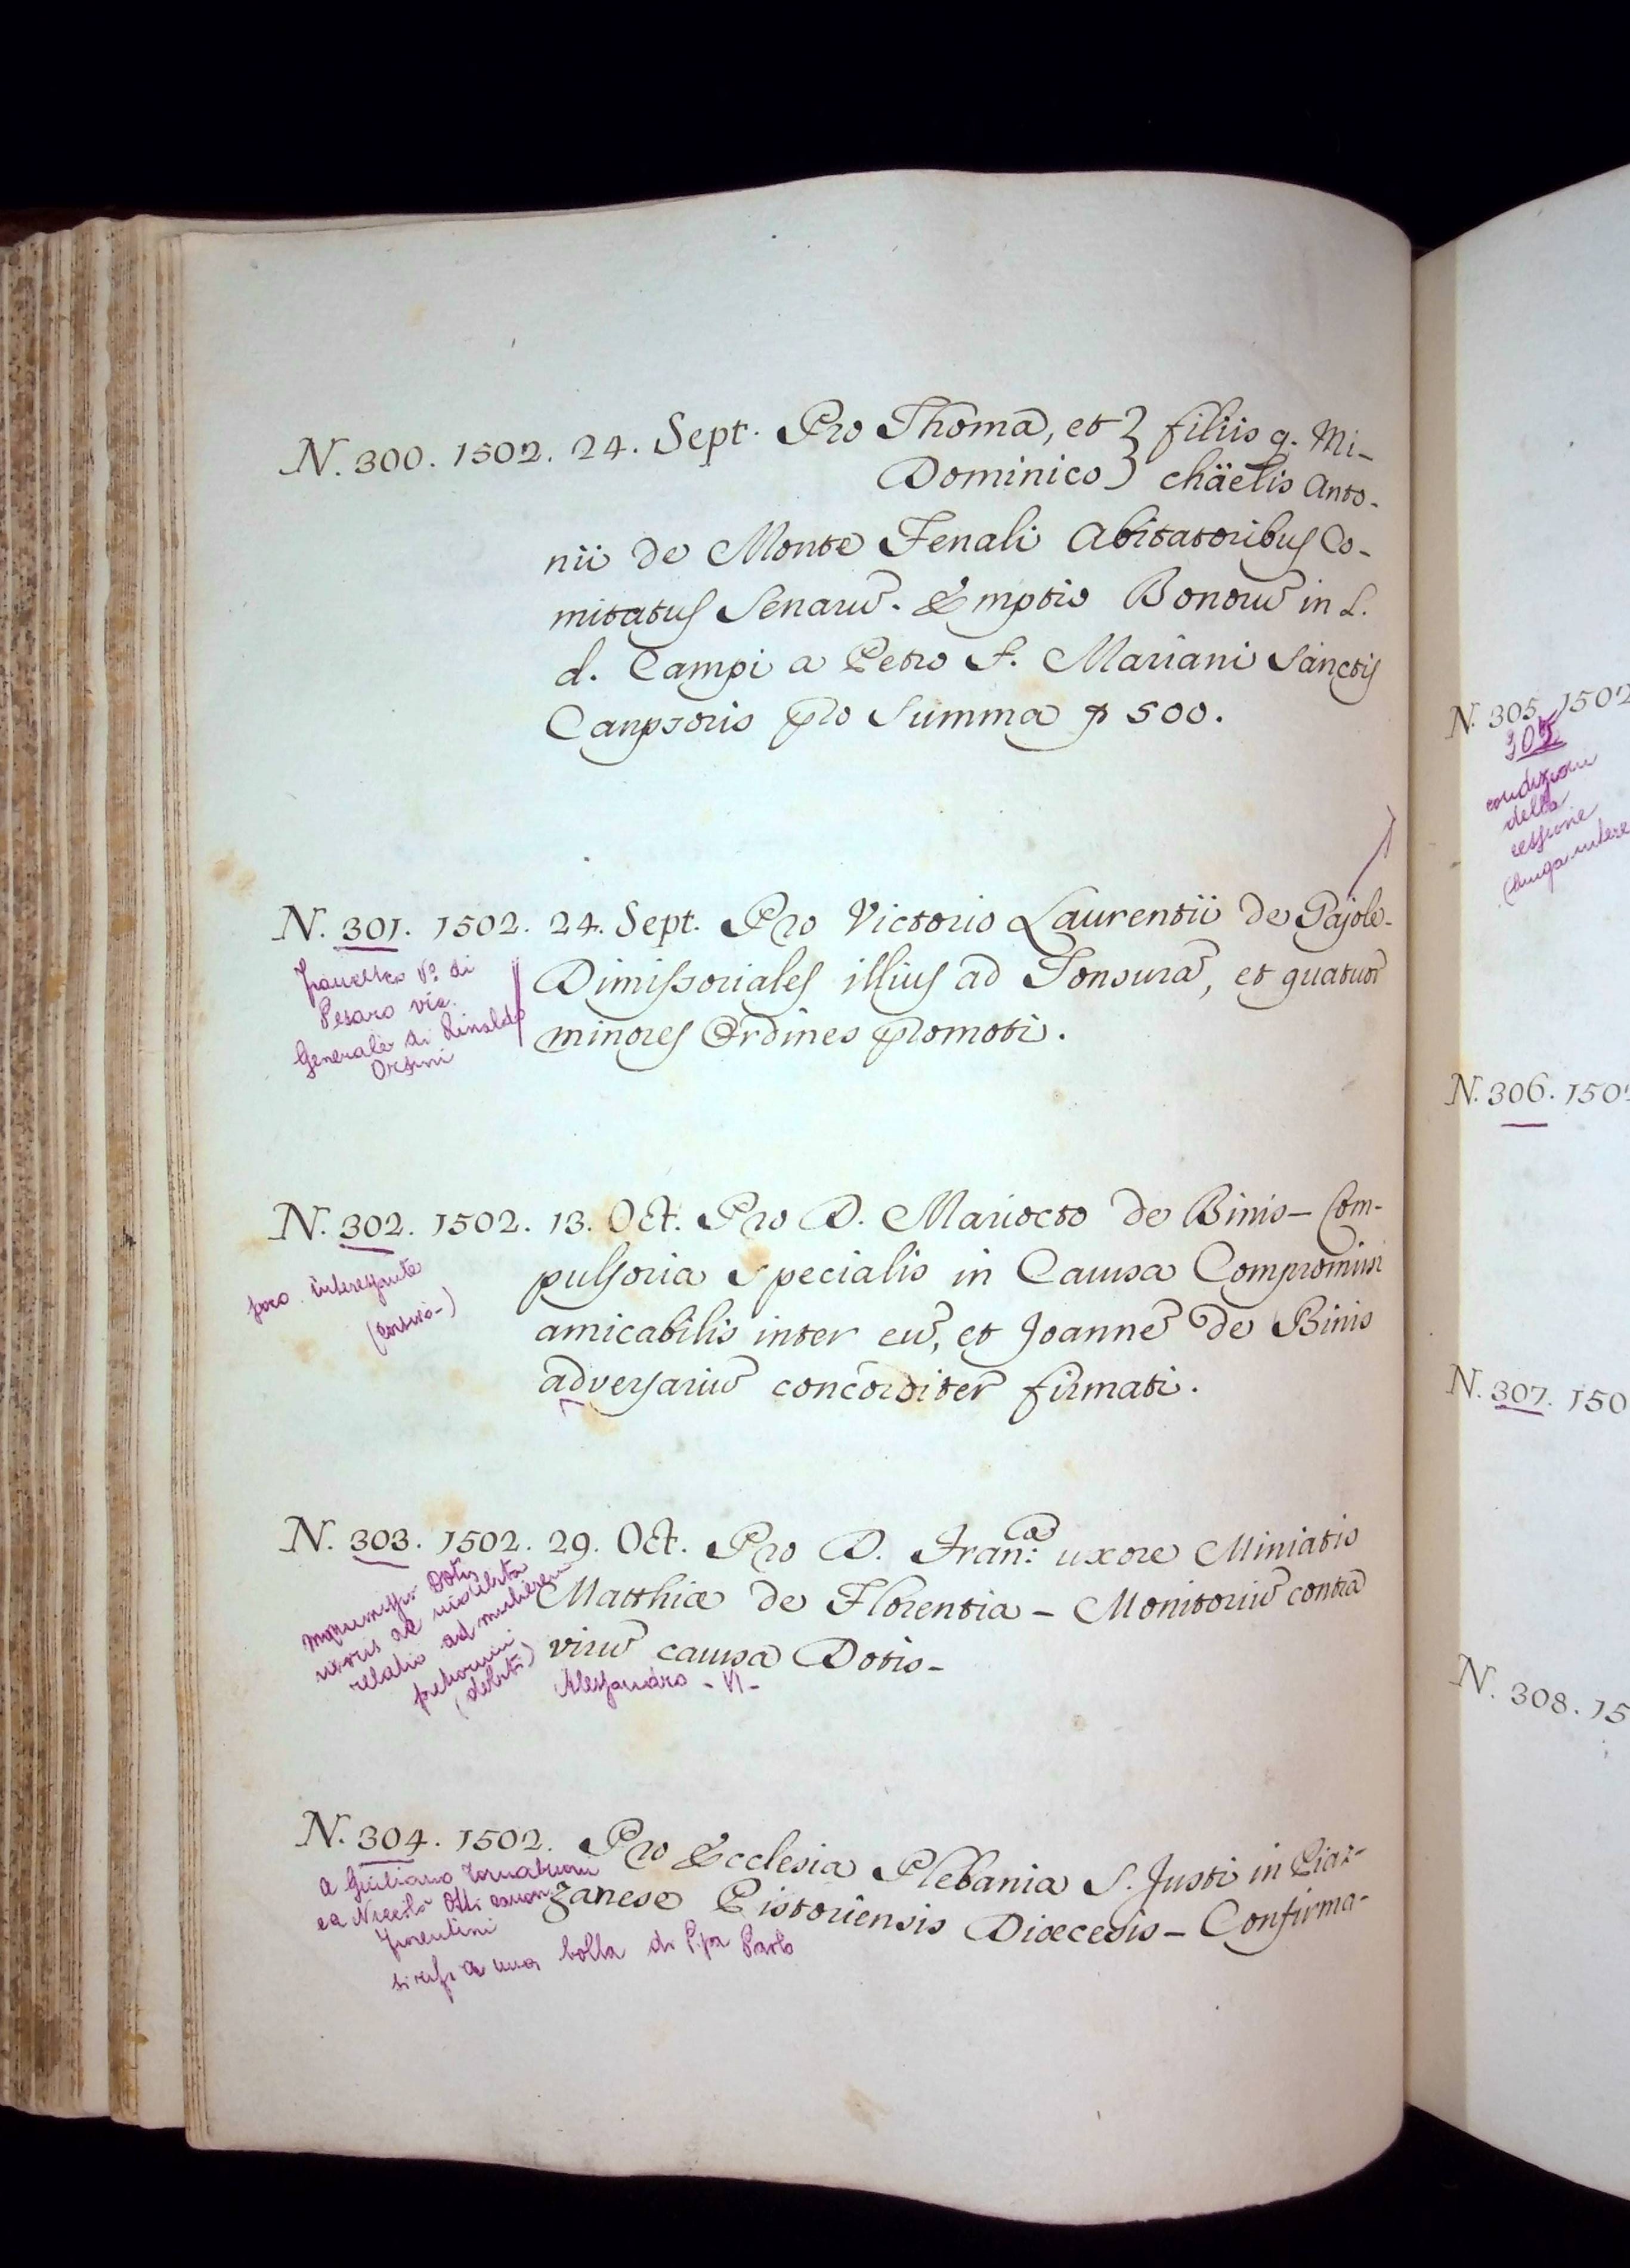 N. 300. 1502. 24. Sept. Pro Thoma, et } filiis q. Mi-
Dominico } chäelis Anto-
nii de Monte Fenali Abitatoribus Co-
mitatus Senarū. Emptio Bonorū in L.
d. Campi a Petro S. Mariani Sanctis
Canpsoris pro Summa 500.
N. 301. 1502. 24. Sept. Pro Victorio Laurentii de Pajole-
Dimissoriales illius ad Tonsurā, et quatuor
minores Ordines promoti.
Vº di
Pesaro vic.
Generale di Rinaldo
Orsini
N. 302. 1502. 13. Oct. Pro D. Mariocto de Binis - Com-
pulsoria Specialis in Causa Compromissi
amicabilis inter eū, et Joannē de Binis
adversariū concorditer firmati.
poco interessante
N. 303. 1502. 29. Oct. Pro D. Fran:ᵃ uxore Miniatis
Matthiæ de Florentia - Monitoriū contra
virū causa Dotis-
Alessandro - VI -
Dotis
relatio ad mulierem
N. 304. 1502. Pro Ecclesia Plebania S. Justi in Piaz-
zanese Pistoriensis Diœcesis - Confirma-
a Giuliano Tornabuoni
e a Niccolò
Fiorentini
a una bolla di Ppa Paolo
N. 305. 1502
305
condizioni
della
cessione
N. 306. 150
N. 307. 150
N. 308. 15